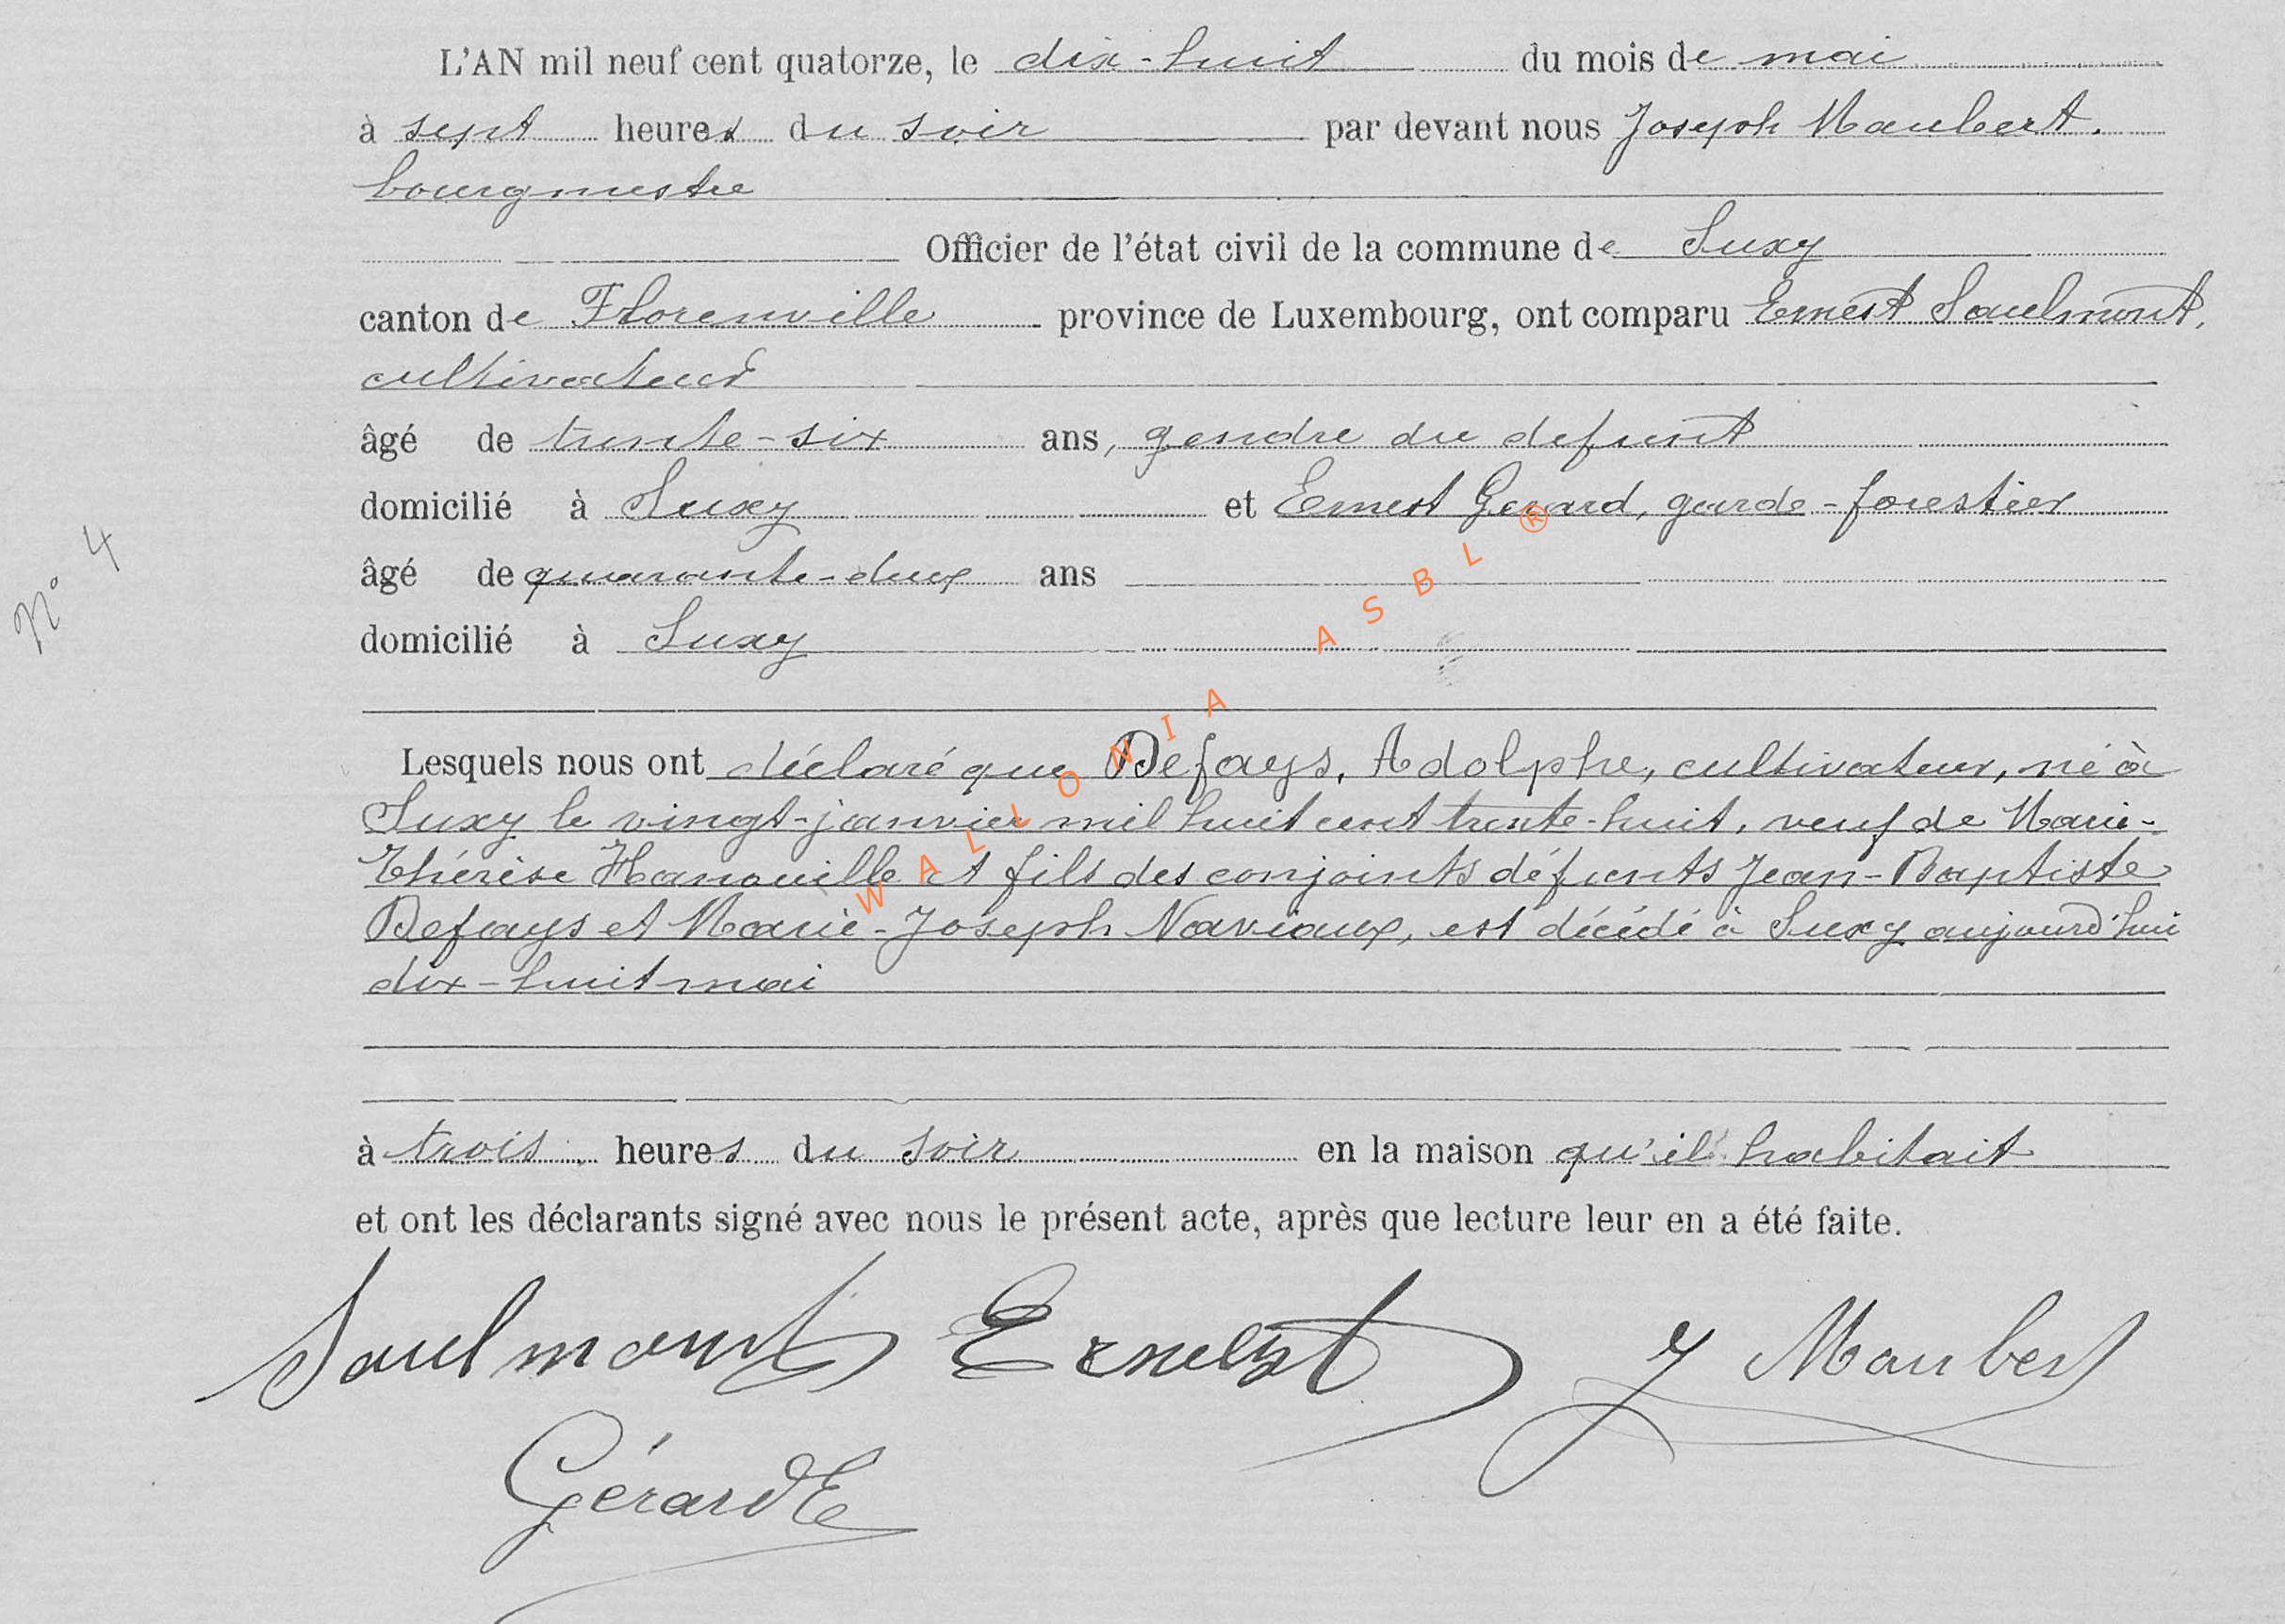 L'AN mil neuf cent quatorze, le dix-huit du mois de mai
à sept heures du soir par devant nous Joseph Maubert.
bourgmestre
Officier de l'état civil de la commune de Suxy
canton de Florenville province de Luxembourg, ont comparu Ernest Saulmont,
cultivateur
âgé de trente-six ans, gendre du defunt
domicilié à Suxy et Ernest Gerard, garde-forestier
N° 4
âgé de quarante-deux ans
domicilié à Suxy
Lesquels nous ont déclaré que Defays, Adolphe, cultivateur, né à
Suxy le vingt-janvier mil huit cent trente-huit, veuf de Marie-
Thérèse Hanouille et fils des conjoints défunts Jean-Baptiste
Defays et Marie-Joseph Naviaux, est décédé à Suxy aujourd'hui
dix-huit mai
à trois heures du soir en la maison qu'il habitait
et ont les déclarants signé avec nous le présent acte, après que lecture leur en a été faite.
Saulmont Ernest J Maubert
Gérard E
WALLONIA ASBL ®